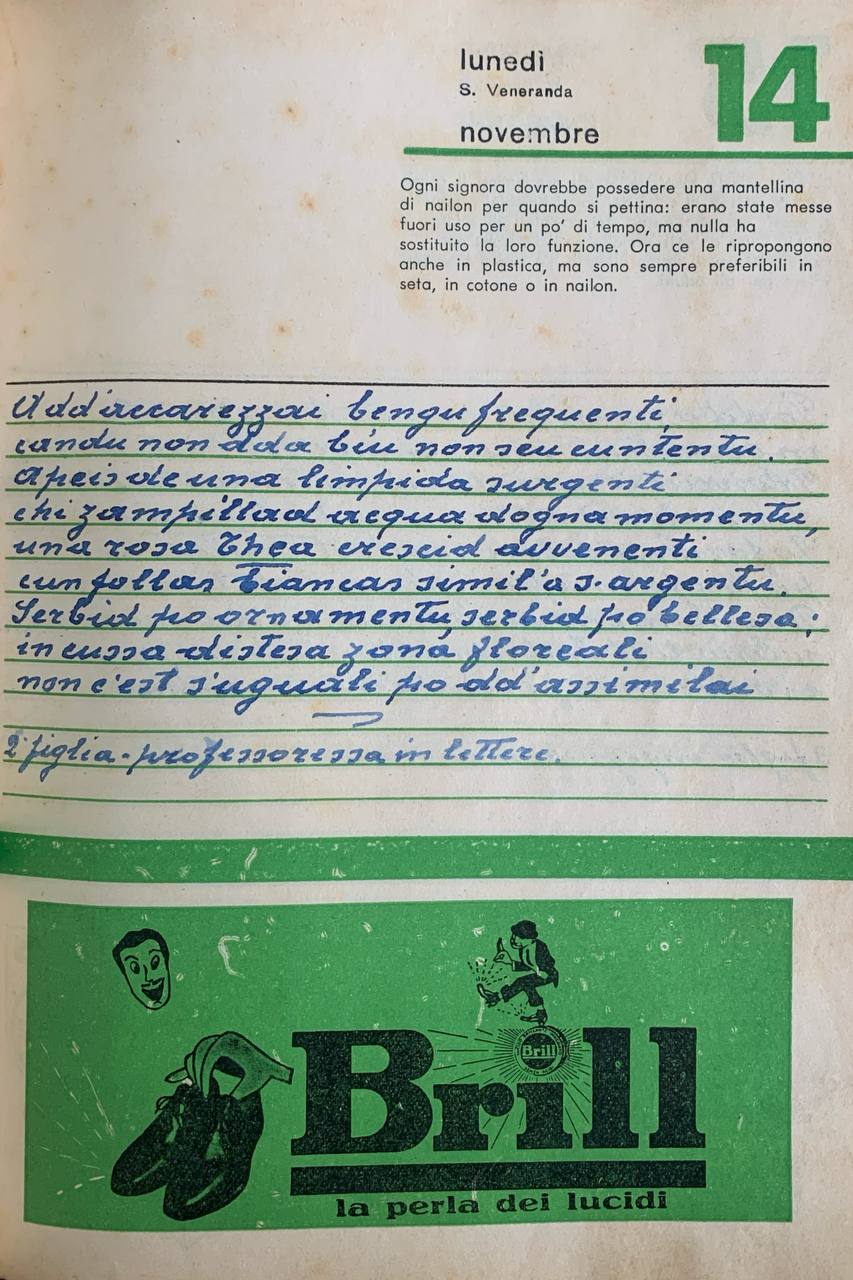 lunedì
S. Veneranda
novembre
14
Ogni signora dovrebbe possedere una mantellina
di nailon per quando si pettina: erano state messe
fuori uso per un po' di tempo, ma nulla ha
sostituito la loro funzione. Ora ce le ripropongono
anche in plastica, ma sono sempre preferibili in
seta, in cotone o in nailon.
Add'accarezzai bengu frequenti,
candu non dda biu non seu cuntentu.
Apeis de una limpida surgenti
chi zampillad acqua dogna momentu,
una rosa Thea crescid avvenenti
cun follas biancas simil'a s'argentu.
Serbid po ornamentu, serbid po bellesa;
in cussa distesa zona floreali
non c'est s'uguali po dd'assimilai
2ª figlia - professoressa in lettere.
Brill
Brill
la perla dei lucidi